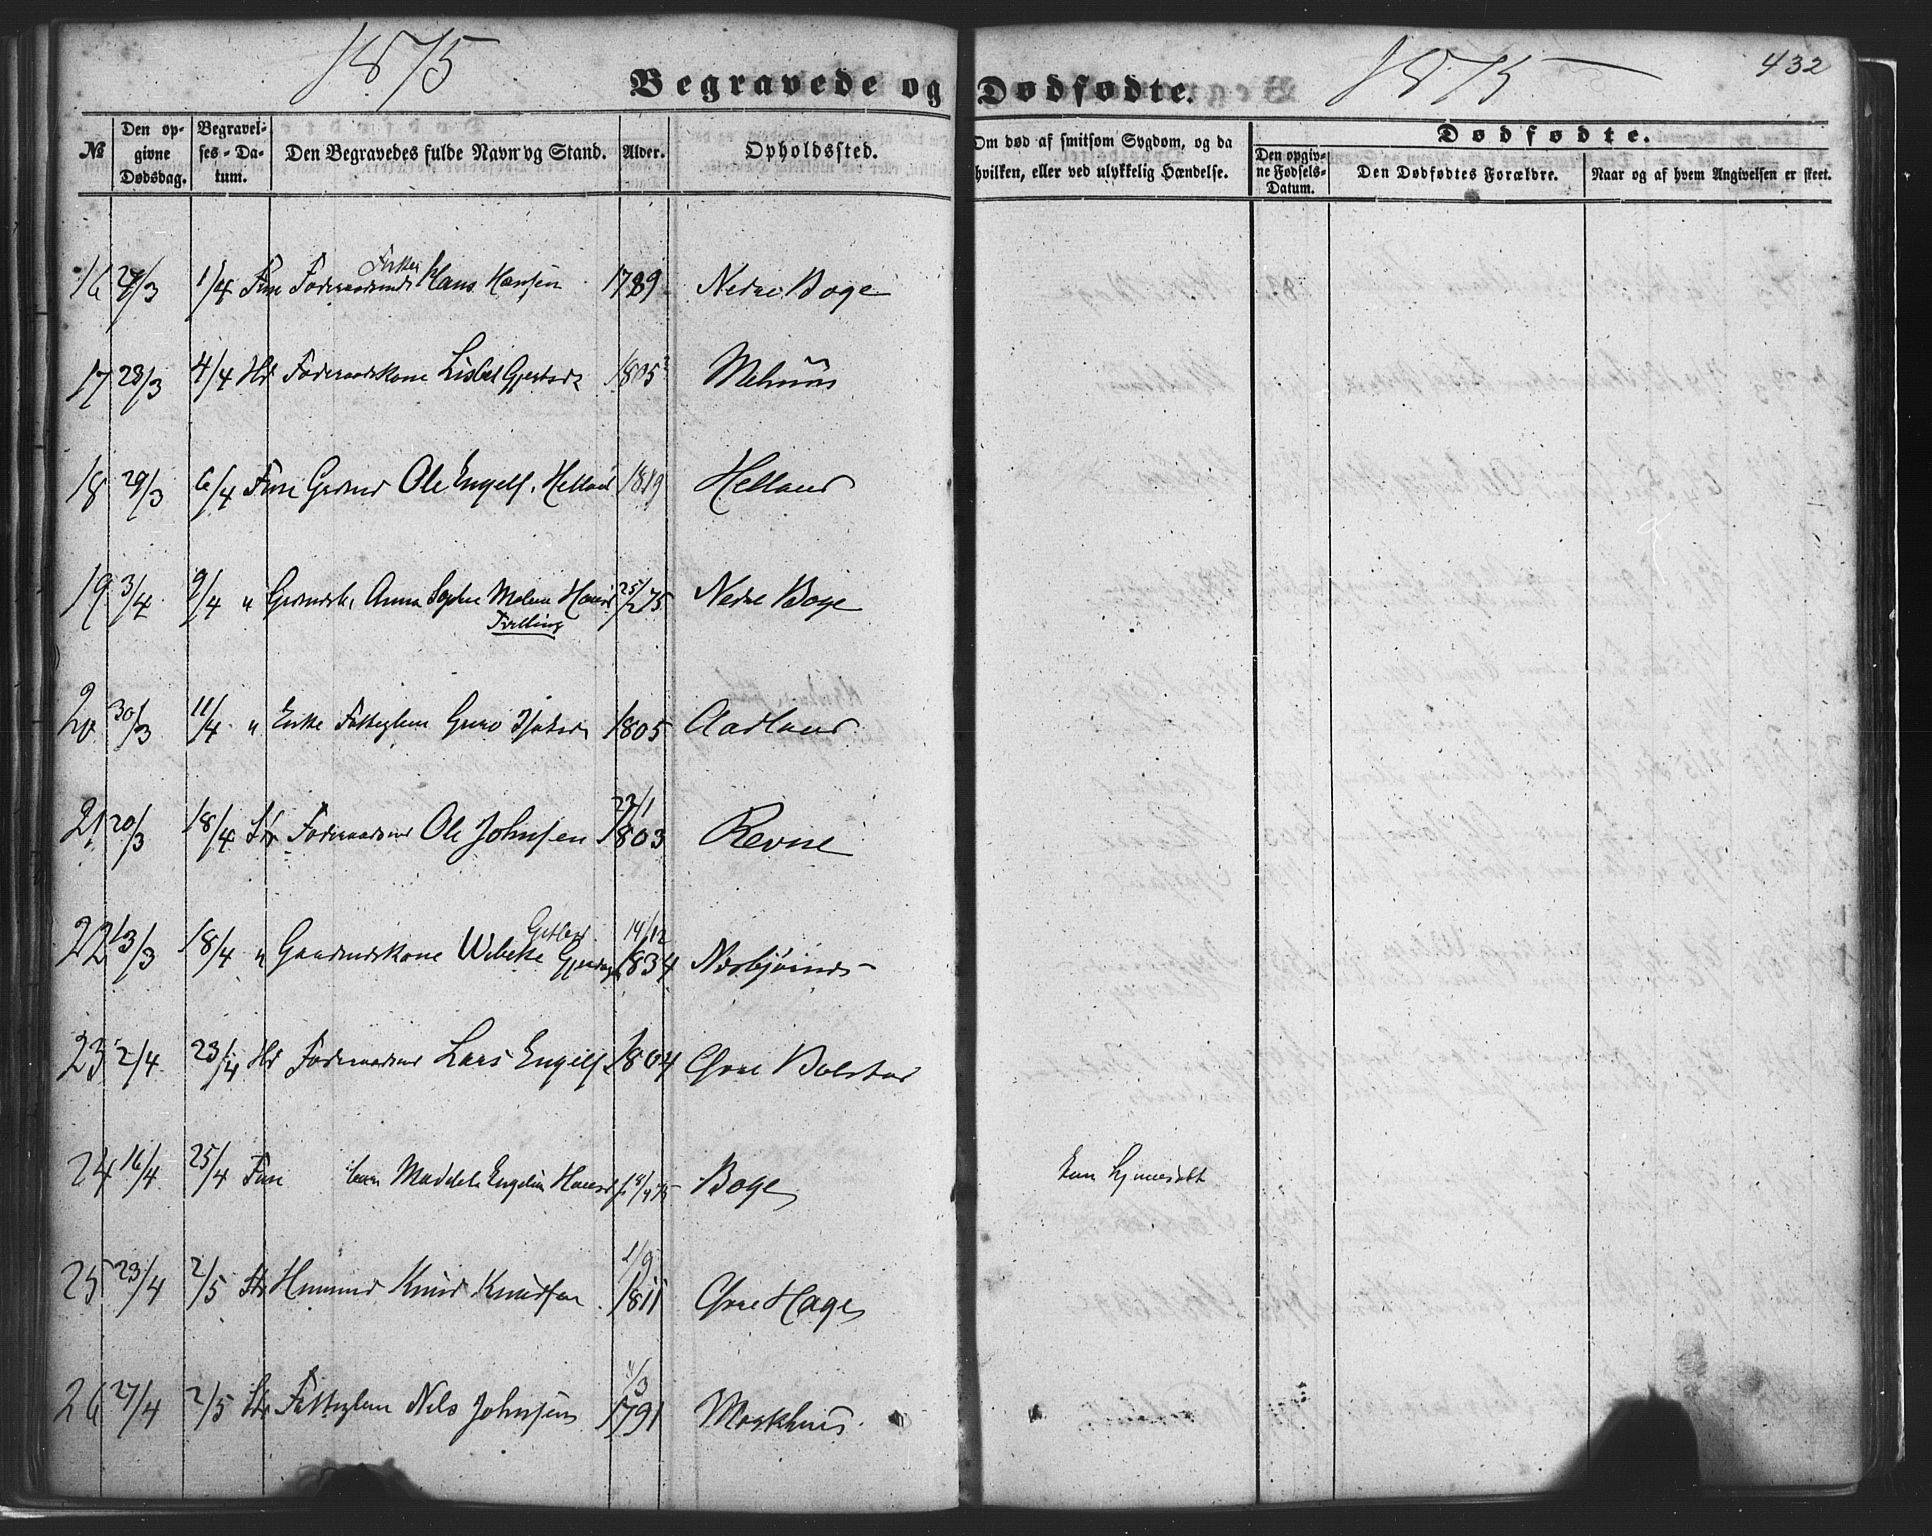 1875
1875
432
Begravede og Dødfødte.
No
Den opgivne Dødsdag.
Begravelses-Datum.
Den Begravedes fulde Navn og Stand.
Alder.
Opholdssted.
Om død af smitsom Sygdom, og da hvilken, eller ved ulykkelig Hændelse.
Dødfødte.
Den opgivne Fødsels-Datum.
Den Dødfødtes Forældre.
Naar og af hvem Angivelsen er skeet.
16 27/3 1/4 Fuse Hans Hansen 1789 Nedre Boge
17 28/3 4/4 Hd Føderaadskone Lisbet 1805 Melhuus
18 29/3 6/4 Fuse Grdmd Ole Engelf. Helland 1819 Helland
19 3/4 9/4 " Anna Sophie Malene 25/2 75 Nedre Boge
Tvilling
20 30/3 11/4 " Enke Fattiglem Guro 1805 Aadland
21 20/3 18/4 Str Føderaadsmd Ole Johnsen 22/1 1803 Revne
22 13/3 18/4 " Gaardmdskone Wibeke 14/12 1834
23 2/4 23/4 Hd Føderaadsmd Lars Engelf 1804 Øvre Bolstad
24 16/4 25/4 Fuse Barn Engeline Hansd Boge
25 23/4 2/5 Str Huusmd Knud Knudsen 1/9 1811 Øvre Hage
26 27/4 2/5 Str Fattiglem Nels Johnsen 1/3 1791